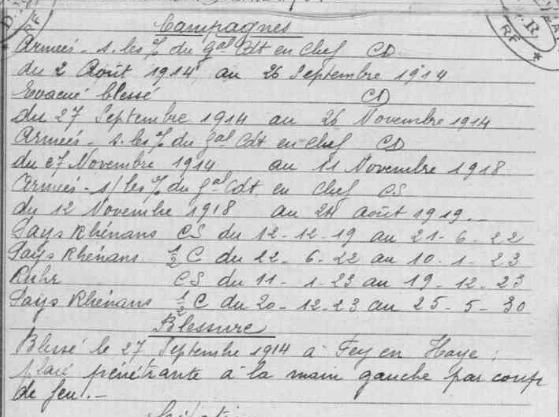 Campagnes
Armées - s. les % du gal Cdt en Chef CD
du 2 Août 1914 au 26 Septembre 1914
Evacué blessé CD
du 27 Septembre 1914 au 26 Novembre 1914
Armées - s. les % du gal Cdt en Chef CD
du 27 Novembre 1914 au 11 Novembre 1918
Armées - s/ les % du gal Cdt en Chef CS
du 12 Novembre 1918 au 24 août 1919.-
Pays Rhénans CS du 12-12-19 au 21-6-22
Pays Rhénans. 1/2 C du 22-6-22 au 10-1-23
Ruhr CS du 11-1-23 au 19-12-23
Pays Rhénans 1/2 C du 20-12-23 au 25-5-30
Blessure
Blessé le 27 Septembre 1914 à Fey en Haye ;
plaie pénétrante à la main gauche par coup
de feu.-